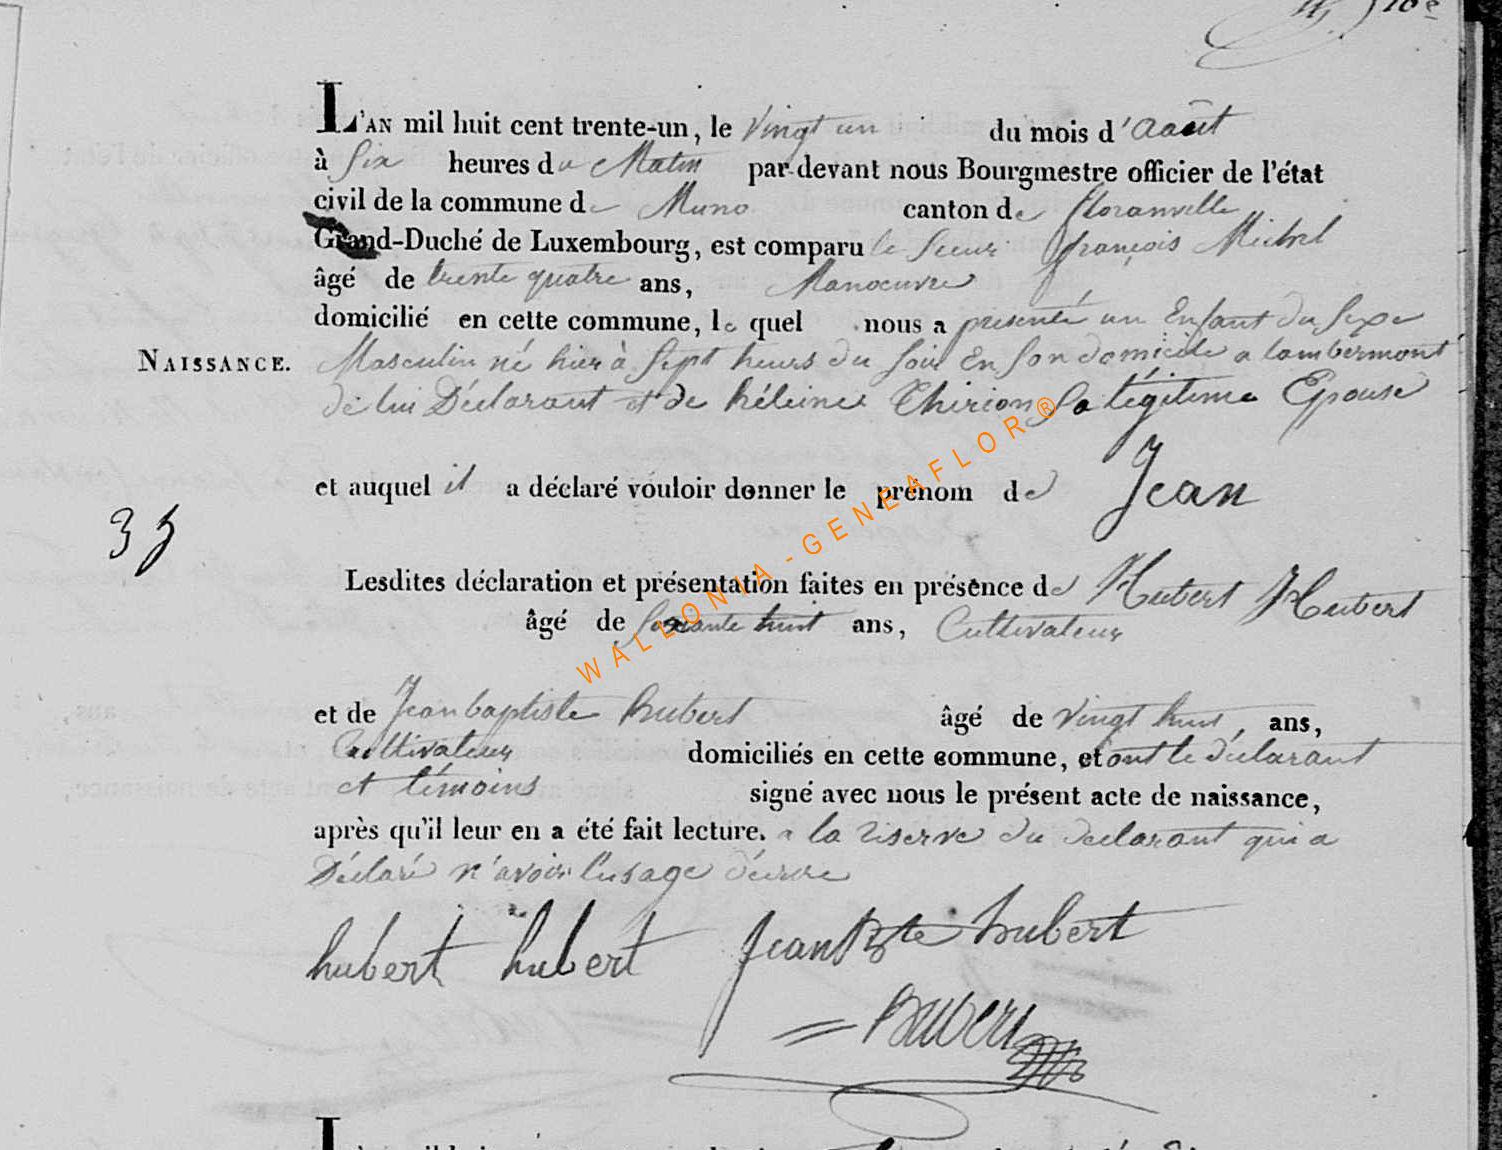 L'AN mil huit cent trente-un, le Vingt un du mois d'Août
à Six heures du Matin par-devant nous Bourgmestre officier de l'état
civil de la commune de Muno canton de floranville
Grand-Duché de Luxembourg, est comparu le Sieur françois Michel
âgé de trente quatre ans, Manoeuvre
domicilié en cette commune, le quel nous a présenté un Enfant du Sexe
NAISSANCE. Masculin né hier à Sept heurs du Soir En Son domicile a lambermont
de lui Déclarant et de héleine Thirion Sa légitime Epouse
et auquel il a déclaré vouloir donner le prénom de Jean
35
Lesdites déclaration et présentation faites en présence de Hubert Hubert
âgé de Soixante huit ans, Cultivateur
et de Jean baptiste hubert âgé de vingt huit ans,
Cultivateur domiciliés en cette commune, et ont le déclarant
et témoins signé avec nous le présent acte de naissance,
après qu'il leur en a été fait lecture. a la réserve du declarant qui a
Déclaré n'avoir l'usage d'écrire
hubert hubert Jean Bte hubert
WALLONIA-GENEAFLOR®